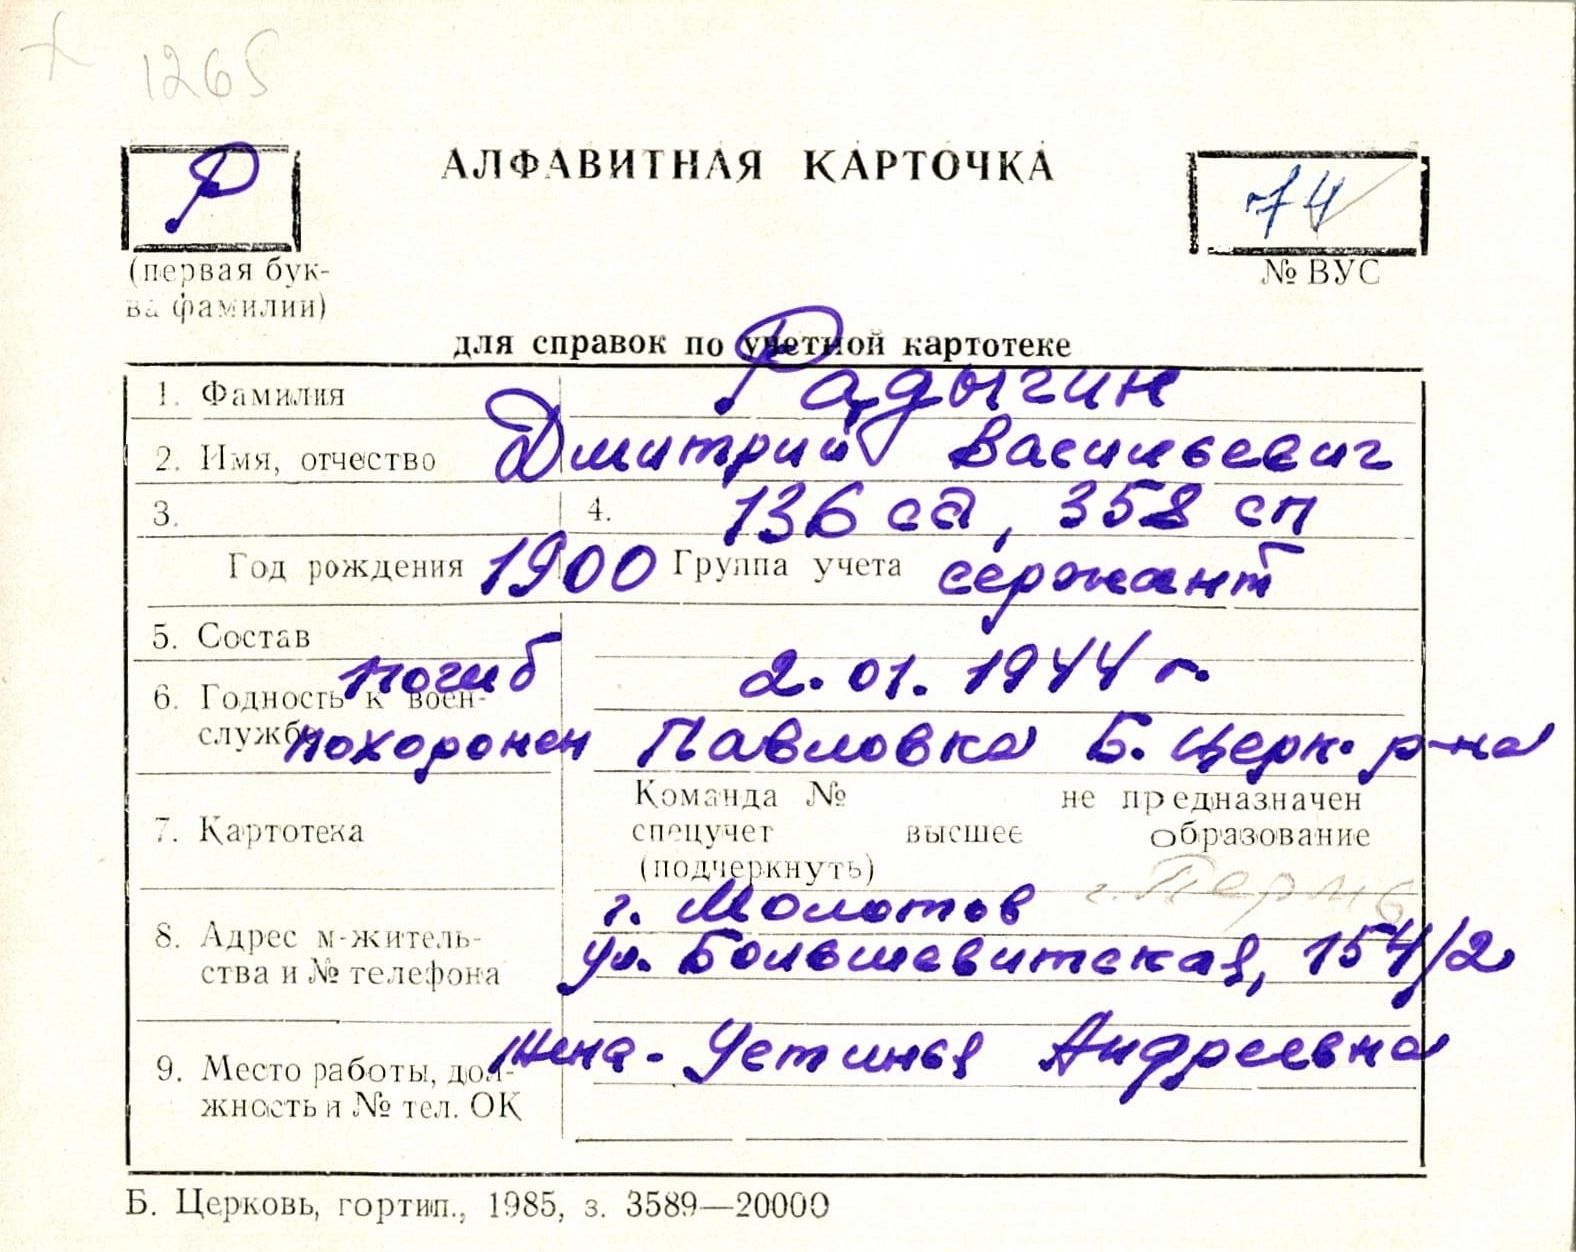 1265
Р
АЛФАВИТНАЯ КАРТОЧКА
74
(первая бук-
ва фамилии)
№ ВУС
для справок по учетной картотеке
1. Фамилия Радыгин
2. Имя, отчество Дмитрий Васильевич
3. 4. 136 сд, 358 сп
Год рождения 1900 Группа учета сержант
5. Состав
погиб 2.01.1944 г.
6. Годность к воен-
службе похоронен Павловка Б. Церк. р-на
Команда № не предназначен
7. Картотека спецучет высшее образование
(подчеркнуть)
г. Молотов г. Пермь
8. Адрес м-житель-
ства и № телефона ул. Большевитская, 154/2
жена - Устинья Андреевна
9. Место работы, дол-
жность и № тел. ОК
Б. Церковь, гортип., 1985, з. 3589—20000